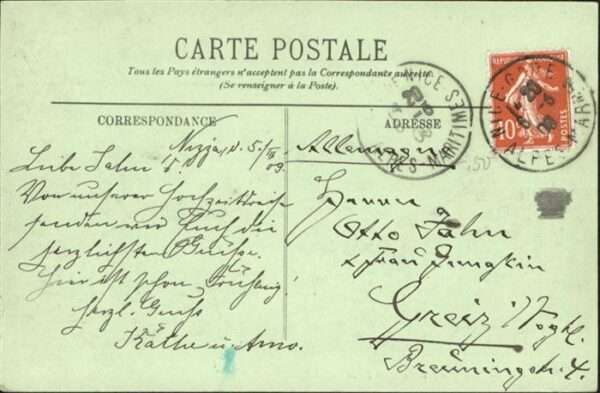 CARTE POSTALE
Tous les Pays étrangers n'acceptent pas la Correspondance au recto.
(Se renseigner à la Poste).
CORRESPONDANCE
ADRESSE
Nizza, d. 5/III 09.
Liebe Jahn's.
Von unserer Hochzeitsreise
senden wir Euch die
herzlichsten Grüsse.
Hier ist schon Frühling!
Herzl. Gruss
Käthe u. Arno.
Allemagne
Herrn
Otto Jahn
u. Frau Gemahlin
Greiz i/Vogtl.
NICE-GARE
ALPES-MARITIMES
NICE
ALPES-MARITIMES
10
POSTES